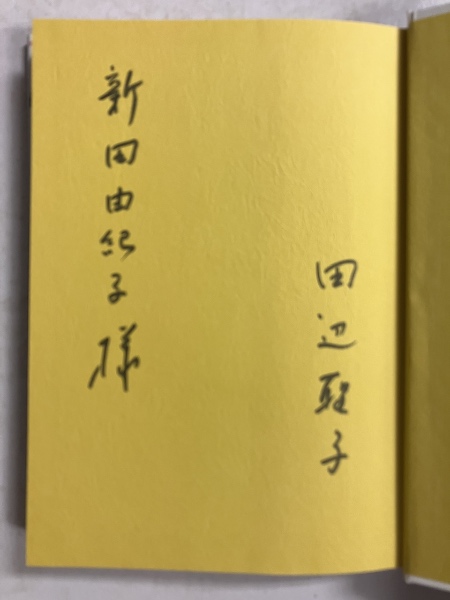 田辺聖子
新田由紀子様